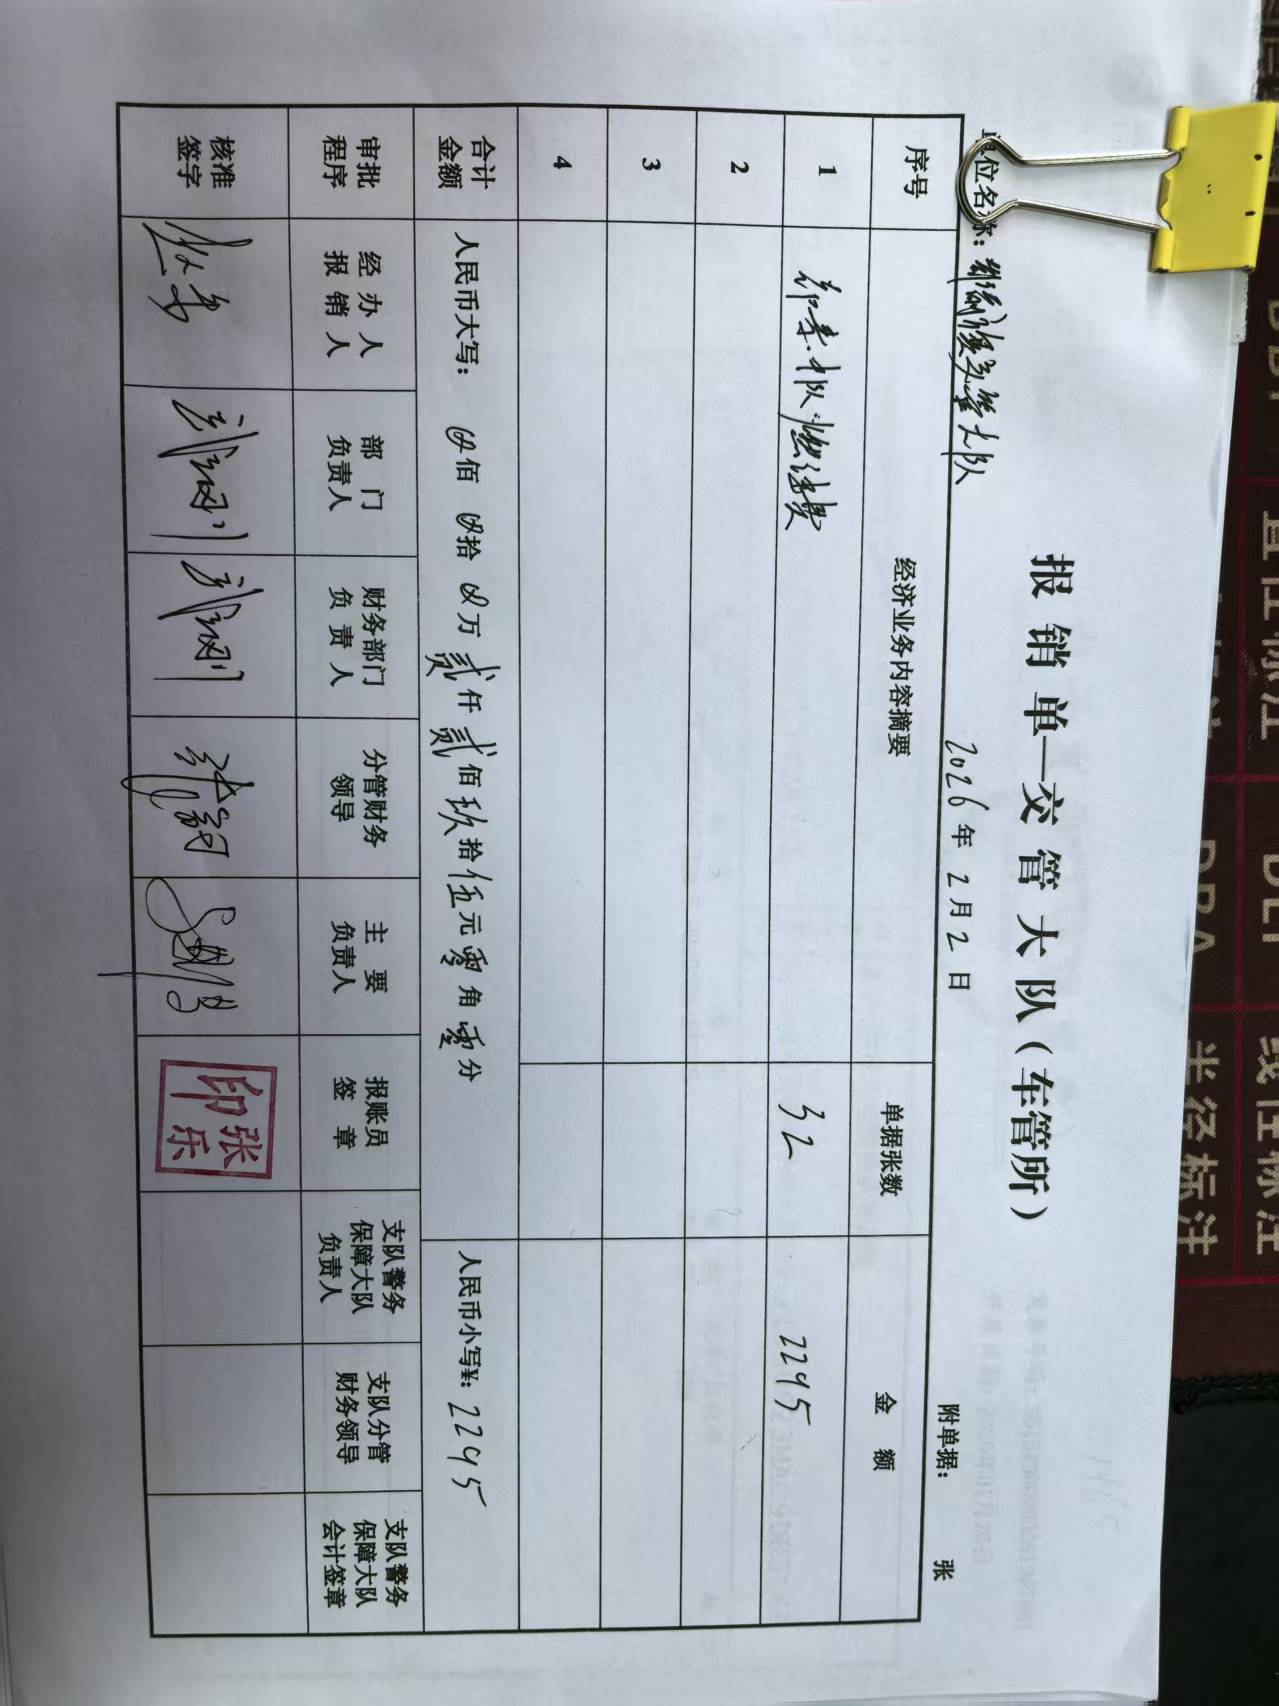 报销单—交管大队（车管所）
单位名称：
交警大队
2026年2月2日
附单据： 张
序号 经济业务内容摘要 单据张数 金额
1 中队燃油费 32 2295
2
3
4
合计金额 人民币大写： 佰 拾 万 贰仟 贰佰 玖拾 伍元 零角 零分 人民币小写¥：2295
审批程序 经办人报销人 部门负责人 财务部门负责人 分管财务领导 主要负责人 报账员签章 支队警务保障大队负责人 支队分管财务领导 支队警务保障大队会计签章
核准签字 张乐印
直径标注
半径标注
线性标注
DLI
DRA